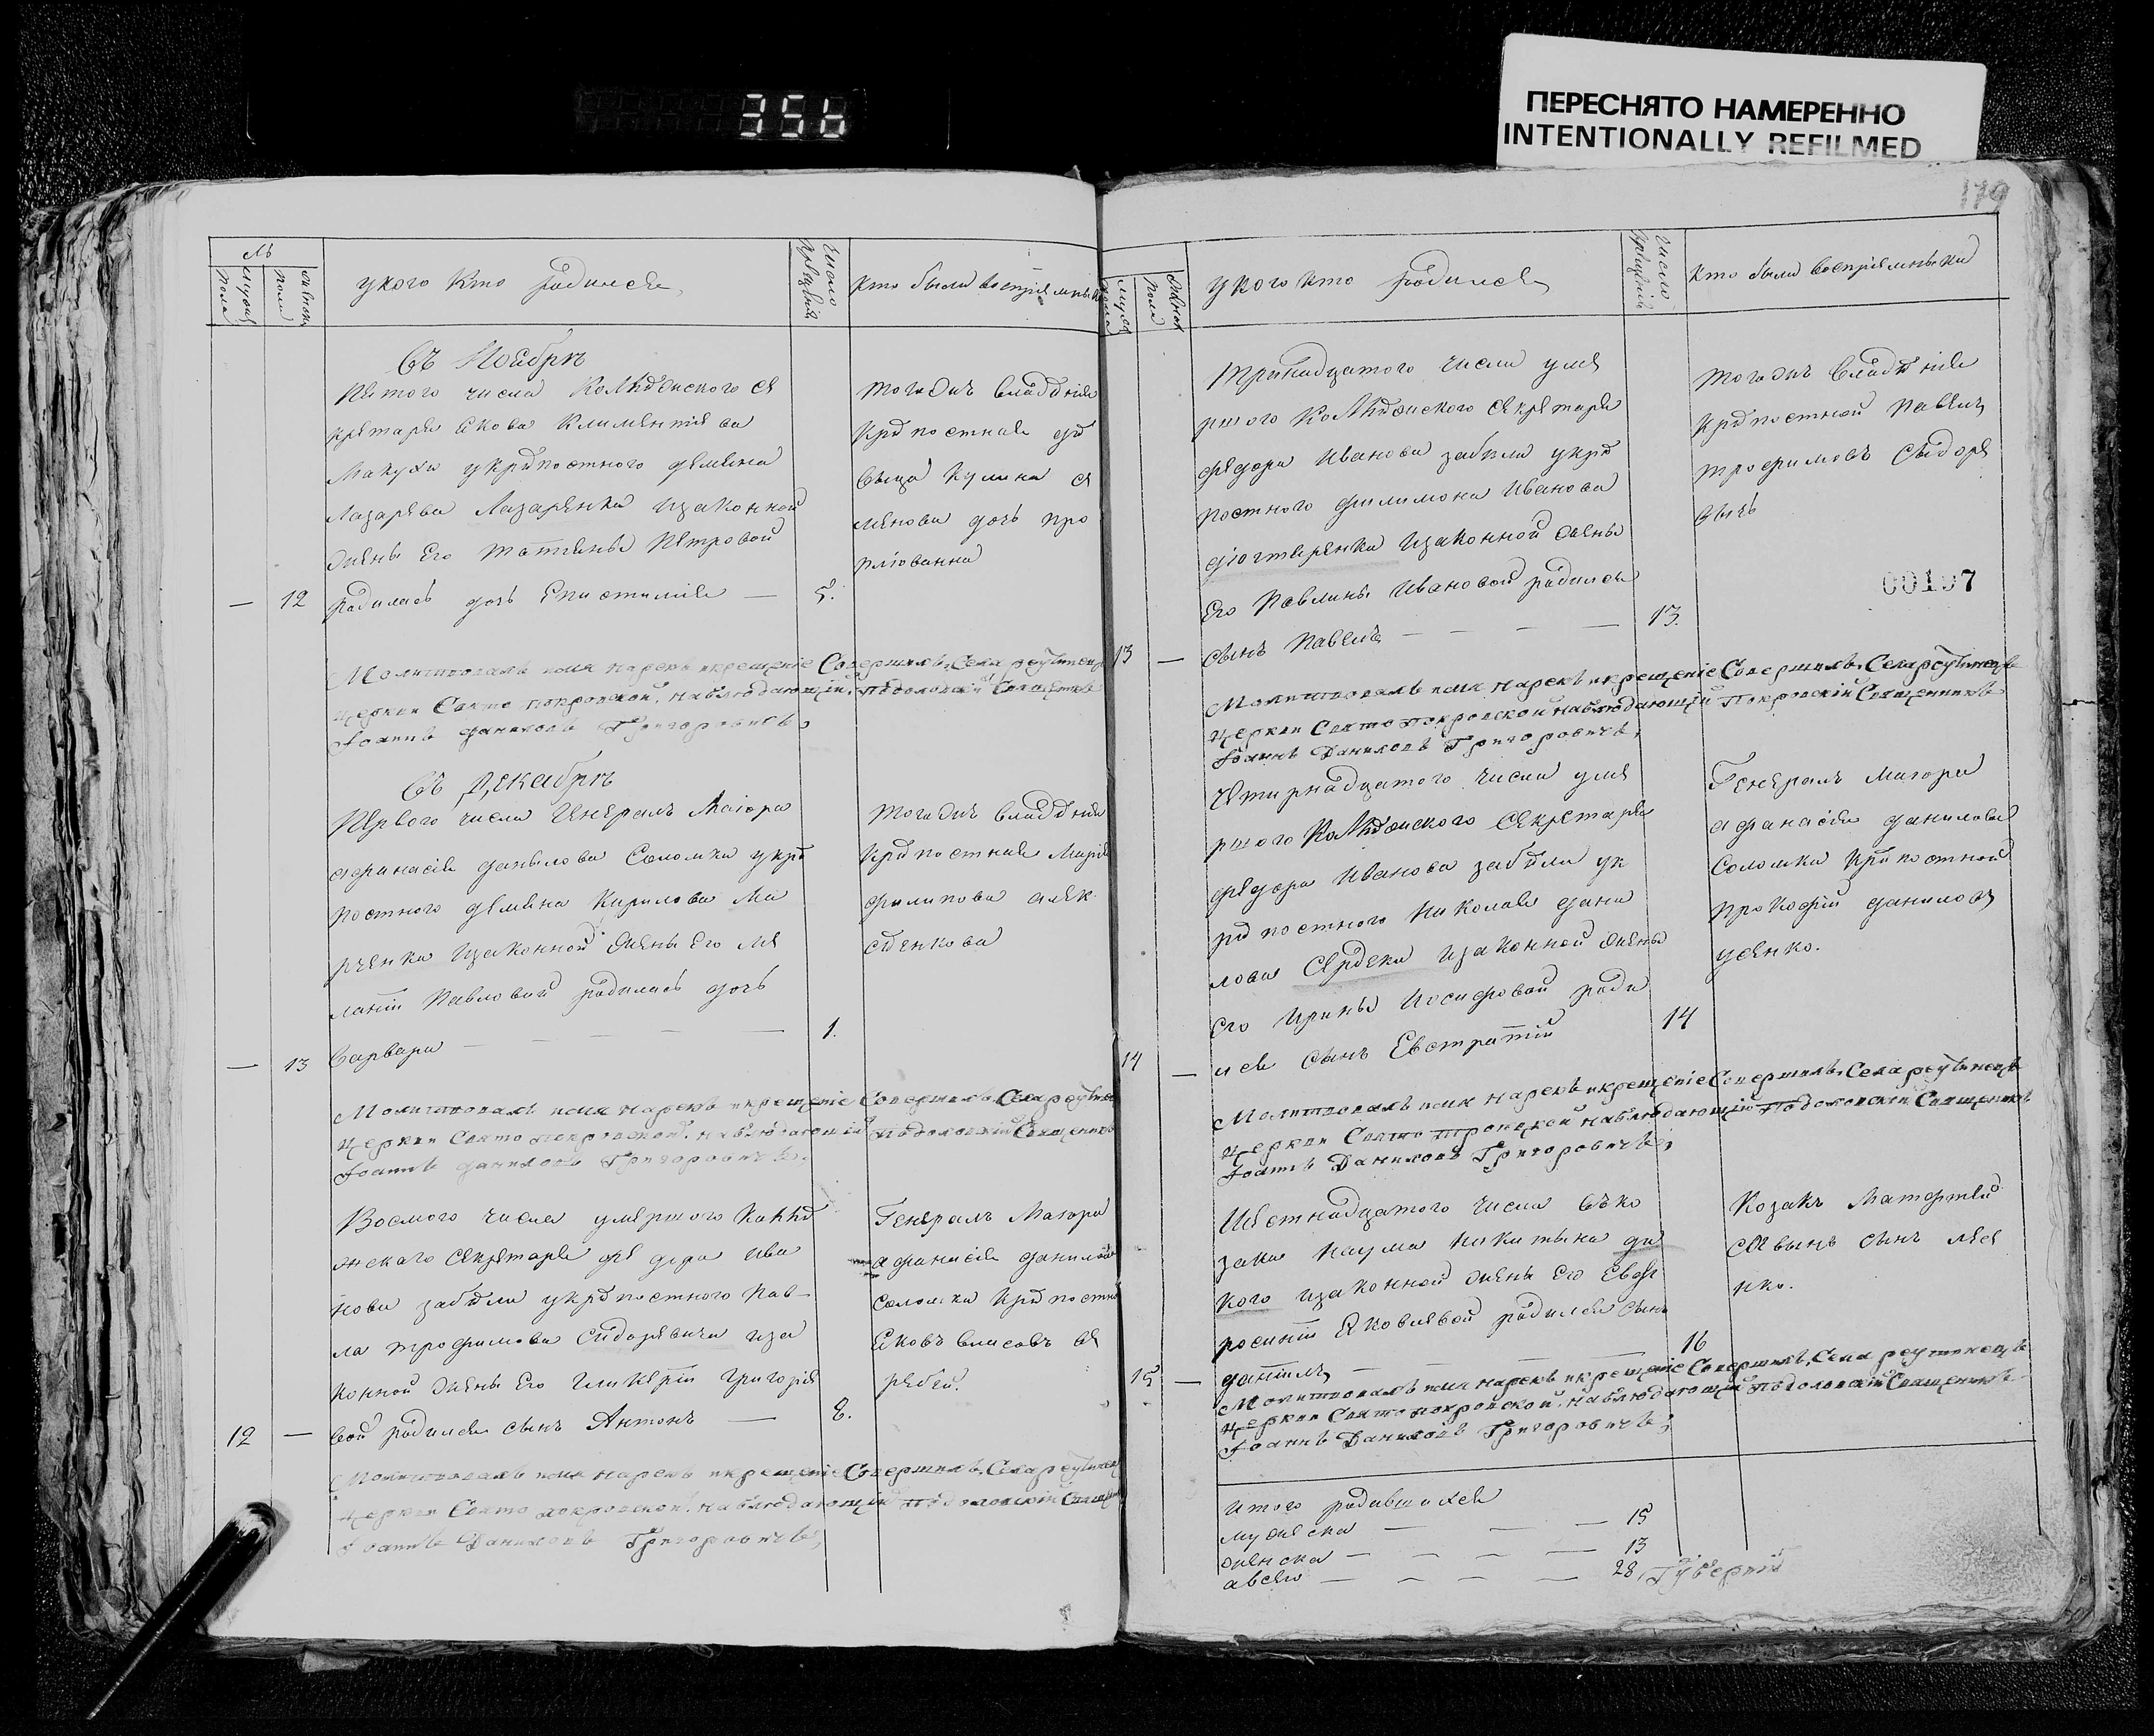 356
ПЕРЕСНЯТО НАМЕРЕННО
INTENTIONALLY REFILMED
179
№
мужеска пола
женска пола
укого кто родился
Число крещенія
кто были восприемники
въ Ноябрѣ
Пятого числа Колѣжского се
кретаря Якова Климентіева
Макухи укрѣпостного демяна
Лазарева Лазаренка изаконной
жены Его Татіяны Петровой
— 12 родилась дочъ Епистимія — 5.
тогожъ владѣнія
крѣпостная
Акулина се
менова дочъ
Молитвовалъ имя нарекъ икрещеніе Совершилъ, Села реутинец
церкви Свято покровской, наблюдающій подоловскій Священникъ
Іоаннъ даниловъ Григоровичъ,
въ Декабрѣ
Первого числа Генералъ Маіора
афанасія данилова Соломки укрѣ
постного демяна Кирилова Ма
рченка изаконной жены его Ме
ланіи Павловой родилась дочъ
— 13 Варвара — — — — 1.
тогожъ владѣнія
крѣпостная Марія
филипова алек
сѣенкова
Молитвовалъ имя нарекъ икрещеніе Совершилъ, Села реутинец
церкви Свято покровской, наблюдающій подоловскій Священникъ
Іоаннъ даниловъ Григоровичъ,
Восмого числа умершого Колѣ
жскаго секретаря федора ива
нова забѣли укрѣпостного пав-
ла трофимова Сидоревича иза
конной жены Его Гликеріи григорие
12 — вой родился сынъ Антонъ — 8.
Генералъ Маіора
афанасія данилова
соломки крѣпостной
Яковъ власовъ ве
ребей.
Молитвовалъ имя нарекъ икрещеніе Совершилъ, Села реутинец
церкви Свято покровской, наблюдающій подоловскій Священ
Іоаннъ Даниловъ Григоровичъ,
мужеска пола
женска пола
укого кто родился
Число крещеній
кто были восприемники
тринадцатого числа уме
ршого Колѣжского секретаря
федора иванова забѣли укрѣ
постного филимона иванова
дюгтяренка изаконной жены
Его Павлины ивановой родился
13 — сынъ павелъ — — — — 13.
тогожъ владѣнія
крѣпостной павелъ
трофимовъ Сидоре
вичъ
00197
Молитвовалъ имя нарекъ икрещеніе Совершилъ, Села реутинецъ
церкви Свято покровской наблюдающій Покровскій Священникъ
Іоаннъ Даниловъ Григоровичъ,
Четирнадцатого числа уме
ршого Колѣжского Секретаря
федора иванова забѣли ук
рѣпостного николая дани
лова Сердеки изаконной жены
Его ирины иосифовой роди
14 — лся сынъ Евстратій 14
Генералъ Маіора
афанасія данилова
Соломки крѣпостной
прокофій даниловъ
усенко.
Молитвовалъ имя нарекъ икрещеніе Совершилъ, Села реутинецъ
церкви Свято троицкой наблюдающій подоловскій Священникъ
Іоаннъ Даниловъ Григоровичъ,
Шестнадцатого числа въ ко
зака наума никитина ди
кого изаконной жены его Евф
росиніи Яковлевой родился сынъ
15 — даніилъ — — — 16
Козакъ Матфій
савинъ сынъ
Молитвовалъ имя нарекъ икрещеніе Совершилъ, Села реутинецъ
церкви Свято покровской, наблюдающій подоловскій Священникъ
Іоаннъ Даниловъ Григоровичъ,
итого родившихся
мужеска — — — 15
женска — — — — 13
авсего — — — — 28, Губерніи